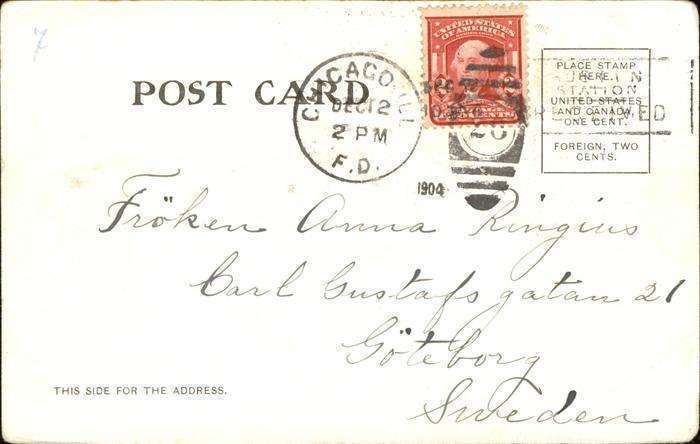 7
UNITED STATES
OF AMERICA
POST CARD
CHICAGO, ILL.
DEC 12
2 PM
F.D.
1904
PLACE STAMP
HERE.
UNITED STATES
AND CANADA,
ONE CENT.
FOREIGN, TWO
CENTS.
STATION
Fröken Anna Ringius
Carl Gustafs gatan 21
Göteborg
Sweden
THIS SIDE FOR THE ADDRESS.